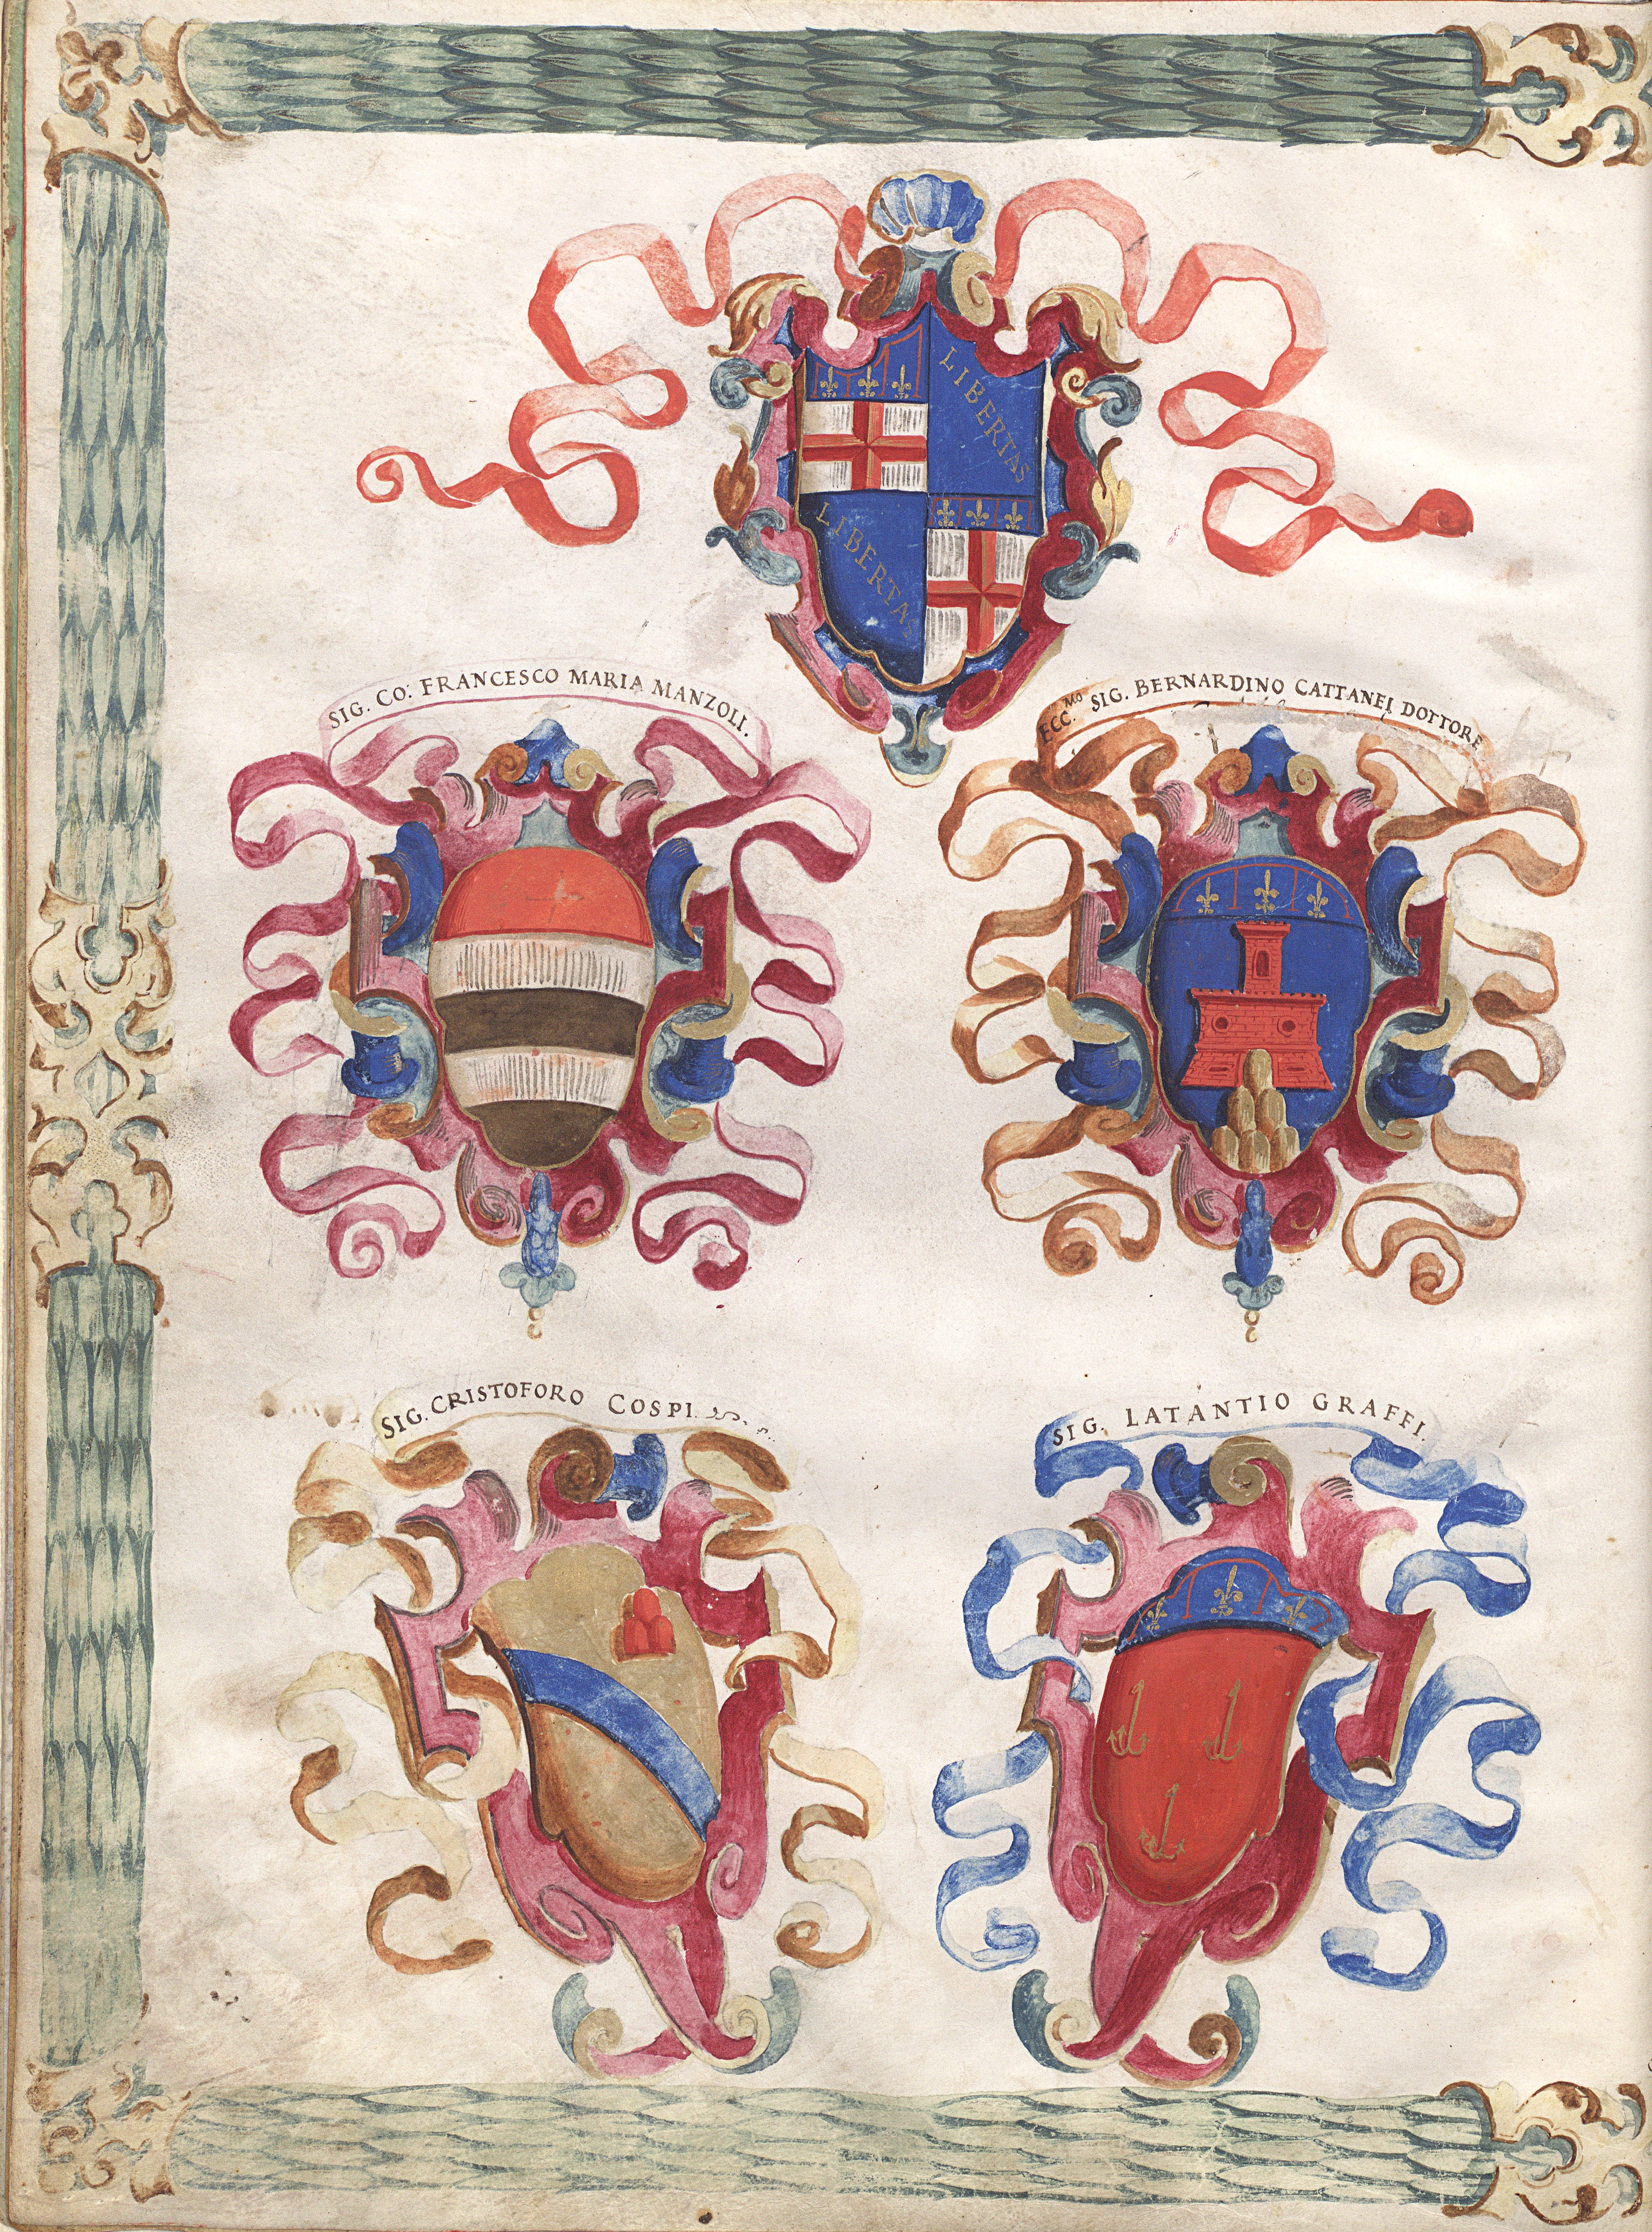 LIBERTAS
LIBERTAS
SIG. CO: FRANCESCO MARIA MANZOLI.
ECC.MO SIG. BERNARDINO CATTANEI DOTTORE
SIG. CRISTOFORO COSPI.
SIG. LATANTIO GRAFFI.